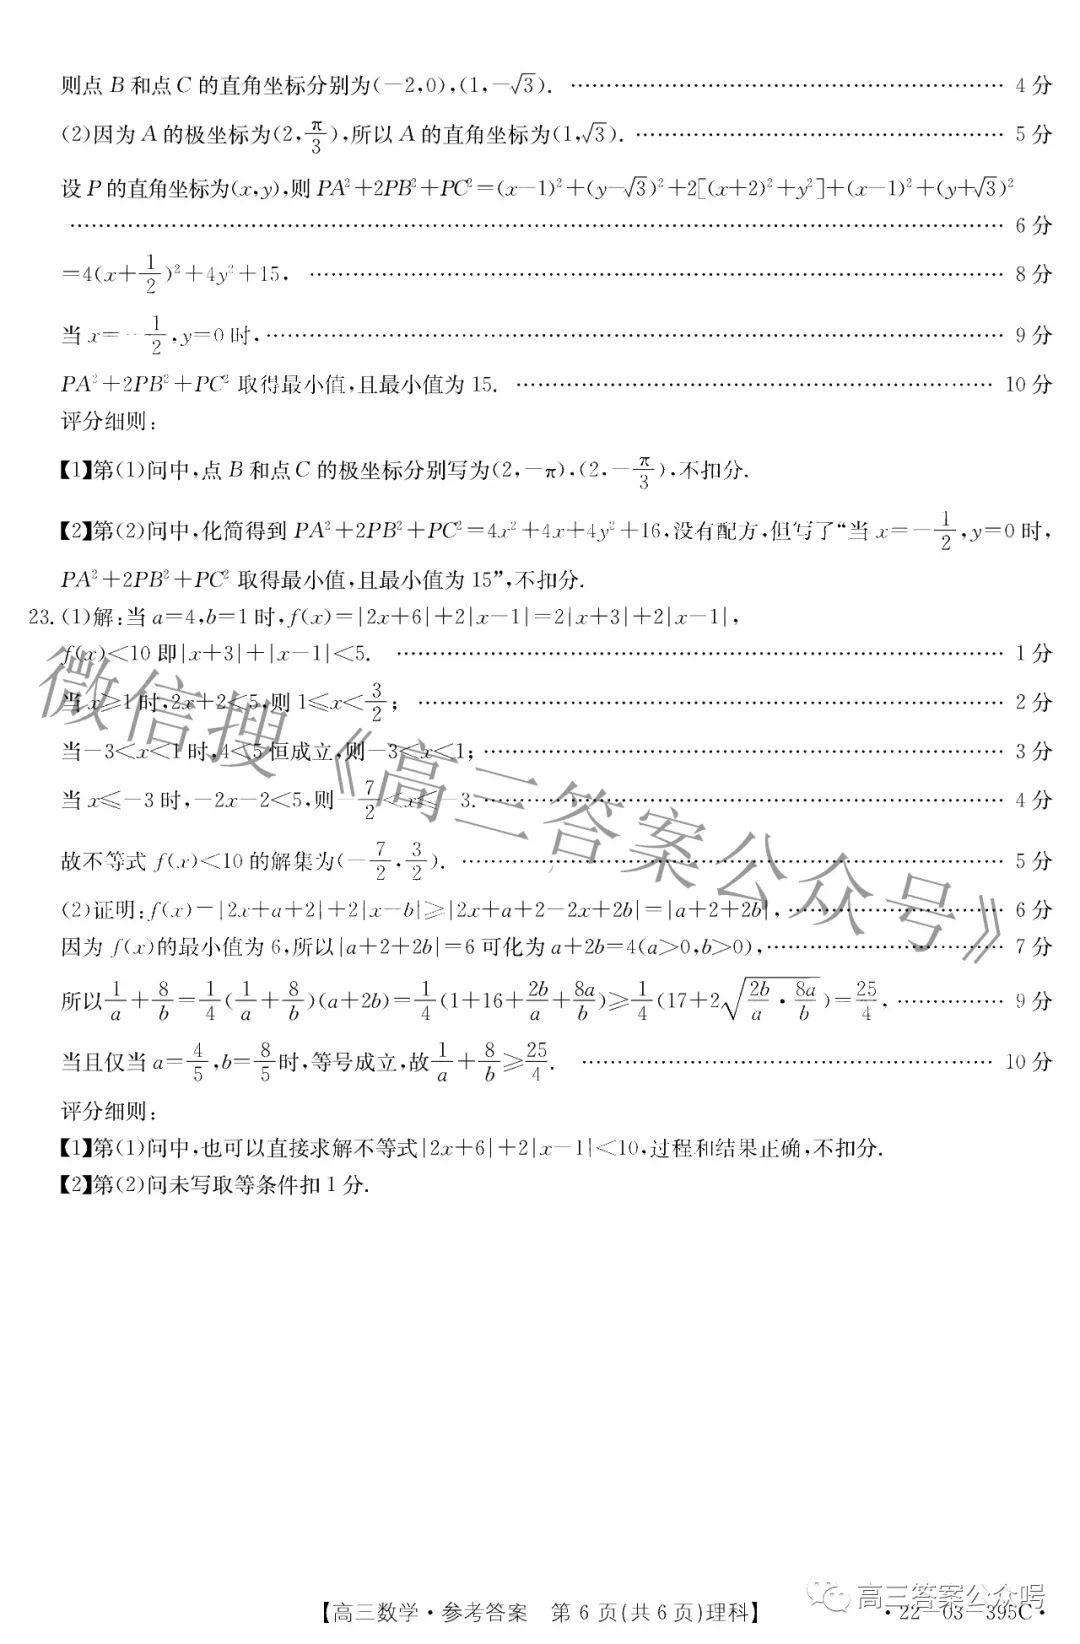 则点 B 和点 C 的直角坐标分别为(−2,0),(1,−√3). …… 4 分
(2)因为 A 的极坐标为(2,π/3),所以 A 的直角坐标为(1,√3). …… 5 分
设 P 的直角坐标为(x,y),则 PA²+2PB²+PC²=(x−1)²+(y−√3)²+2[(x+2)²+y²]+(x−1)²+(y+√3)²
…… 6 分
=4(x+1/2)²+4y²+15. …… 8 分
当 x=−1/2,y=0 时, …… 9 分
PA²+2PB²+PC² 取得最小值,且最小值为 15. …… 10 分
评分细则:
【1】第(1)问中,点 B 和点 C 的极坐标分别写为(2,−π),(2,−π/3),不扣分.
【2】第(2)问中,化简得到 PA²+2PB²+PC²=4x²+4x+4y²+16,没有配方,但写了“当 x=−1/2,y=0 时,
PA²+2PB²+PC² 取得最小值,且最小值为 15”,不扣分.
23. (1)解:当 a=4,b=1 时,f(x)=|2x+6|+2|x−1|=2|x+3|+2|x−1|,
f(x)<10 即|x+3|+|x−1|<5. …… 1 分
当 x≥1 时,2x+2<5,则 1≤x<3/2; …… 2 分
当−3<x<1 时,4<5 恒成立,则−3<x<1; …… 3 分
当 x≤−3 时,−2x−2<5,则−7/2<x≤−3. …… 4 分
故不等式 f(x)<10 的解集为(−7/2,3/2). …… 5 分
(2)证明:f(x)=|2x+a+2|+2|x−b|≥|2x+a+2−2x+2b|=|a+2+2b|, …… 6 分
因为 f(x)的最小值为 6,所以|a+2+2b|=6 可化为 a+2b=4(a>0,b>0), …… 7 分
所以1/a+8/b=1/4(1/a+8/b)(a+2b)=1/4(1+16+2b/a+8a/b)≥1/4(17+2√(2b/a·8a/b))=25/4, …… 9 分
当且仅当 a=4/5,b=8/5时,等号成立,故1/a+8/b≥25/4. …… 10 分
评分细则:
【1】第(1)问中,也可以直接求解不等式|2x+6|+2|x−1|<10,过程和结果正确,不扣分.
【2】第(2)问未写取等条件扣 1 分.
微信搜《高三答案公众号》
高三答案公众号
【高三数学·参考答案 第 6 页(共 6 页)理科】
·22−03−395C·